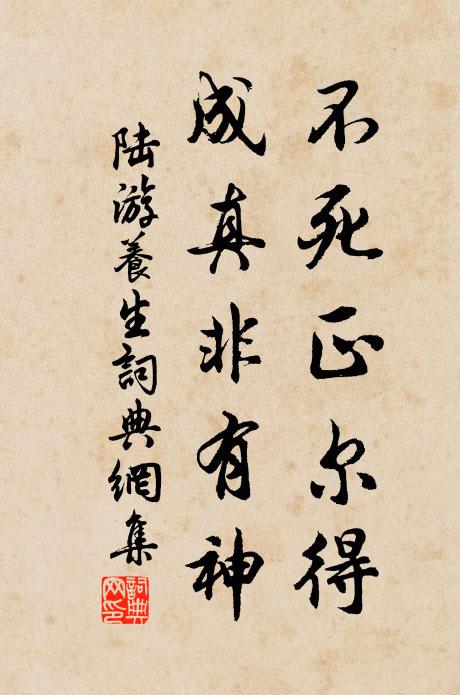 不死正尔得
成真非有神
陆游養生詞典網集
詞典网印